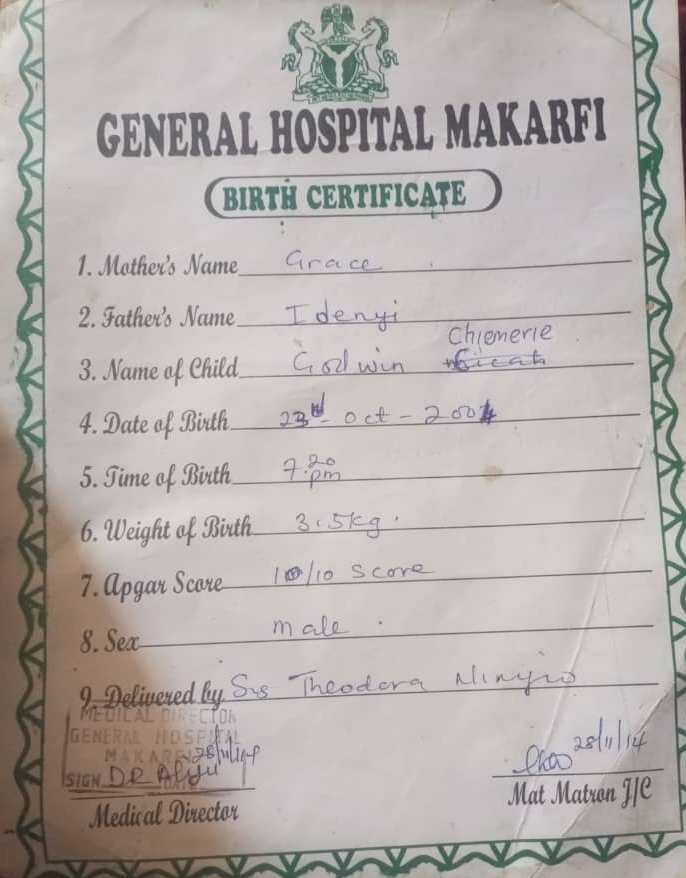 GENERAL HOSPITAL MAKARFI
BIRTH CERTIFICATE
1. Mother's Name Grace
2. Father's Name Idenyi
Chiemerie
3. Name of Child Godwin
4. Date of Birth 23rd - Oct - 2004
5. Time of Birth 7.20 pm
6. Weight of Birth 3.5kg.
7. Apgar Score 10/10 Score
8. Sex male
9. Delivered by Sis Theodora
MEDICAL DIRECTOR
GENERAL HOSPITAL
MAKARFI 28/11/14
SIGN DR Aliyu
Medical Director
28/11/14
Mat Matron I/C